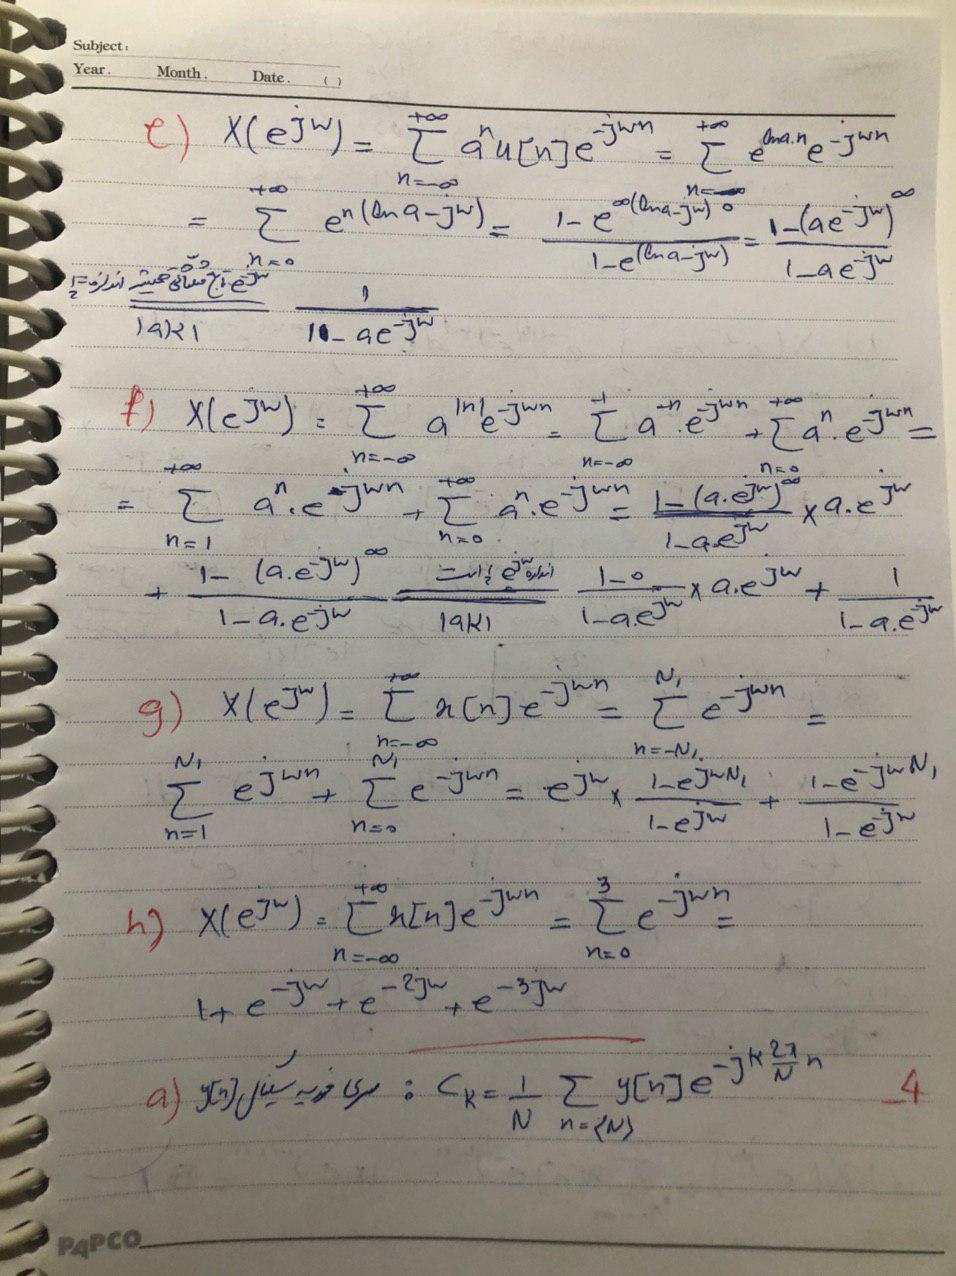 Subject:
Year. Month. Date. ( )
e) X(e^jw) = Σ_{n=-∞}^{+∞} a^n u[n] e^{-jwn} = Σ_{n=0}^{+∞} e^{ln a.n} e^{-jwn}
= Σ_{n=0}^{+∞} e^{n(ln a - jw)} = (1 - e^{∞(ln a - jw)}) / (1 - e^{(ln a - jw)}) = (1 - (a e^{-jw})^∞) / (1 - a e^{-jw})
|a|<1 1 / (1 - a e^{-jw})
f) X(e^jw) = Σ_{n=-∞}^{+∞} a^{|n|} e^{-jwn} = Σ_{n=-∞}^{-1} a^{-n}.e^{-jwn} + Σ_{n=0}^{+∞} a^n.e^{-jwn} =
= Σ_{n=1}^{+∞} a^n.e^{jwn} + Σ_{n=0}^{+∞} a^n.e^{-jwn} = (1 - (a.e^{jw})^∞) / (1 - a.e^{jw}) × a.e^{jw}
+ (1 - (a.e^{-jw})^∞) / (1 - a.e^{-jw}) = اندازه e^{jw} |a|<1 (1-0) / (1 - a.e^{jw}) × a.e^{jw} + 1 / (1 - a.e^{-jw})
g) X(e^jw) = Σ_{n=-∞}^{+∞} x[n] e^{-jwn} = Σ_{n=-N₁}^{N₁} e^{-jwn} =
Σ_{n=1}^{N₁} e^{jwn} + Σ_{n=0}^{N₁} e^{-jwn} = e^{jw} × (1 - e^{jwN₁}) / (1 - e^{jw}) + (1 - e^{-jwN₁}) / (1 - e^{-jw})
h) X(e^jw) = Σ_{n=-∞}^{+∞} x[n] e^{-jwn} = Σ_{n=0}^{3} e^{-jwn} =
1 + e^{-jw} + e^{-2jw} + e^{-3jw}
4_ a) سری فوریه سیگنال y[n] : C_k = 1/N Σ_{n=⟨N⟩} y[n] e^{-jk 2π/N n}
PAPCO